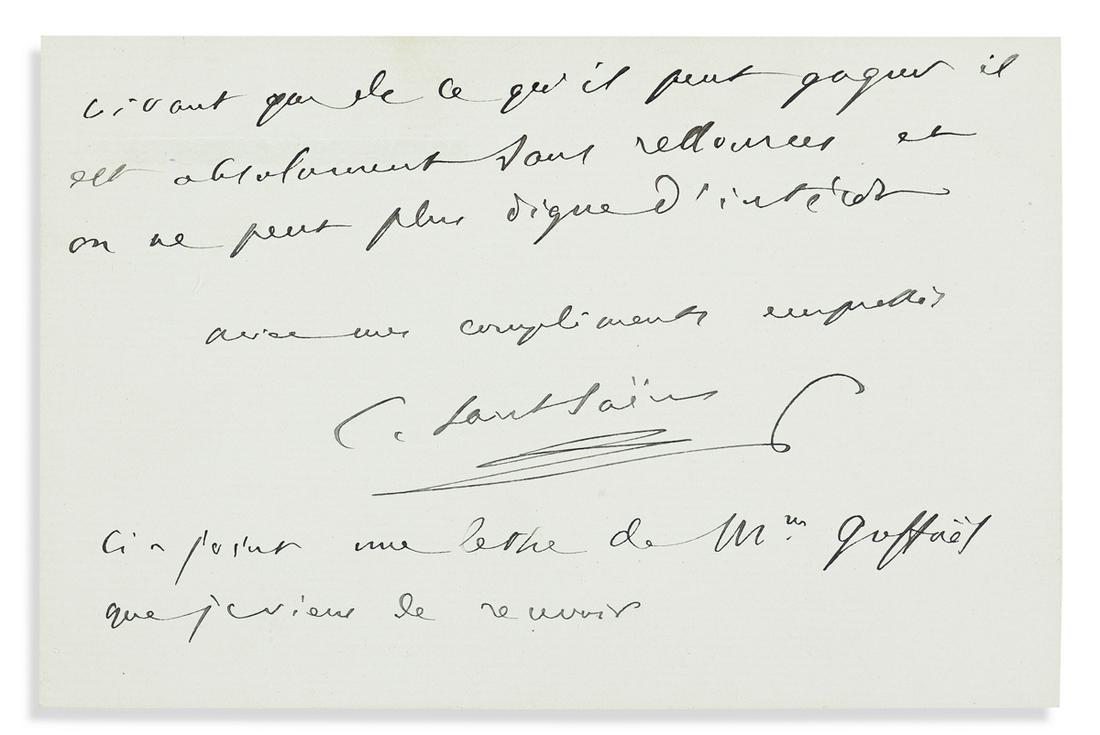 vivant que de ce qu'il peut gagner il
est absolument sans ressources et
on ne peut plus digne d'intérêt
avec mes compliments empressés
C. Saint-Saëns
ci-joint une lettre de Mme
que je viens de recevoir